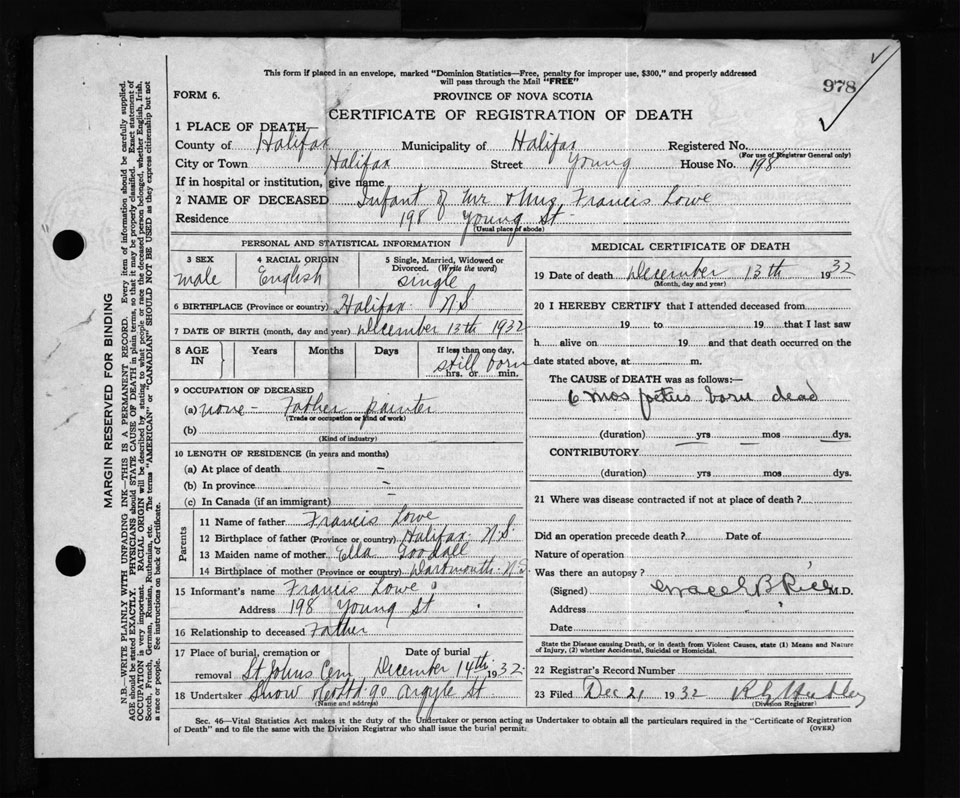 This form if placed in an envelope, marked "Dominion Statistics—Free, penalty for improper use, $300," and properly addressed
will pass through the Mail "FREE"
978
FORM 6.
PROVINCE OF NOVA SCOTIA
CERTIFICATE OF REGISTRATION OF DEATH
1 PLACE OF DEATH—
County of Halifax Municipality of Halifax Registered No.
(For use of Registrar General only)
City or Town Halifax Street Young House No. 198
If in hospital or institution, give name
2 NAME OF DECEASED Infant of Mr & Mrs Francis Lowe
Residence 198 Young St
(Usual place of abode)
PERSONAL AND STATISTICAL INFORMATION
3 SEX
male
4 RACIAL ORIGIN
English
5 Single, Married, Widowed or
Divorced. (Write the word)
single
6 BIRTHPLACE (Province or country) Halifax N.S
7 DATE OF BIRTH (month, day and year) December 13th 1932
8 AGE IN Years Months Days If less than one day,
still born
hrs. or min.
9 OCCUPATION OF DECEASED
(a) none - Father painter
(Trade or occupation or kind of work)
(b)
(Kind of industry)
10 LENGTH OF RESIDENCE (in years and months)
(a) At place of death –
(b) In province –
(c) In Canada (if an immigrant) –
Parents
11 Name of father Francis Lowe
12 Birthplace of father (Province or country) Halifax N.S.
13 Maiden name of mother Ella Goodall
14 Birthplace of mother (Province or country) Dartmouth N.S.
15 Informant's name Francis Lowe
Address 198 Young St
16 Relationship to deceased Father
17 Place of burial, cremation or Date of burial
removal St Johns Cem December 14th 1932
18 Undertaker Snow 90 Argyle St.
(Name and address)
MEDICAL CERTIFICATE OF DEATH
19 Date of death December 13th 1932
(Month, day and year)
20 I HEREBY CERTIFY that I attended deceased from
19 to 19 that I last saw
h alive on 19 and that death occurred on the
date stated above, at m.
The CAUSE of DEATH was as follows:—
6 mos foetus born dead
(duration) — yrs — mos — dys.
CONTRIBUTORY
(duration) yrs mos dys.
21 Where was disease contracted if not at place of death?
Did an operation precede death? Date of
Nature of operation
Was there an autopsy?
(Signed) B Rice M.D.
Address
Date
State the Disease causing Death, or in death from Violent Causes, state (1) Means and Nature
of Injury, (2) whether Accidental, Suicidal or Homicidal.
22 Registrar's Record Number
23 Filed Dec 21 1932
(Division Registrar)
Sec. 46—Vital Statistics Act makes it the duty of the Undertaker or person acting as Undertaker to obtain all the particulars required in the "Certificate of Registration
of Death" and to file the same with the Division Registrar who shall issue the burial permit.
(OVER)
MARGIN RESERVED FOR BINDING
N.B.—WRITE PLAINLY WITH UNFADING INK—THIS IS A PERMANENT RECORD. Every item of information should be carefully supplied.
AGE should be stated EXACTLY. PHYSICIANS should STATE CAUSE OF DEATH in plain terms, so that it may be properly classified. Exact statement of
OCCUPATION is very important. RACIAL ORIGIN will be described by stating to what people or race the deceased person belonged, whether English, Irish,
Scotch, French, German, Russian, Ruthenian, etc. The terms "AMERICAN" or "CANADIAN" SHOULD NOT BE USED as they express citizenship but not
a race or people. See instructions on back of Certificate.